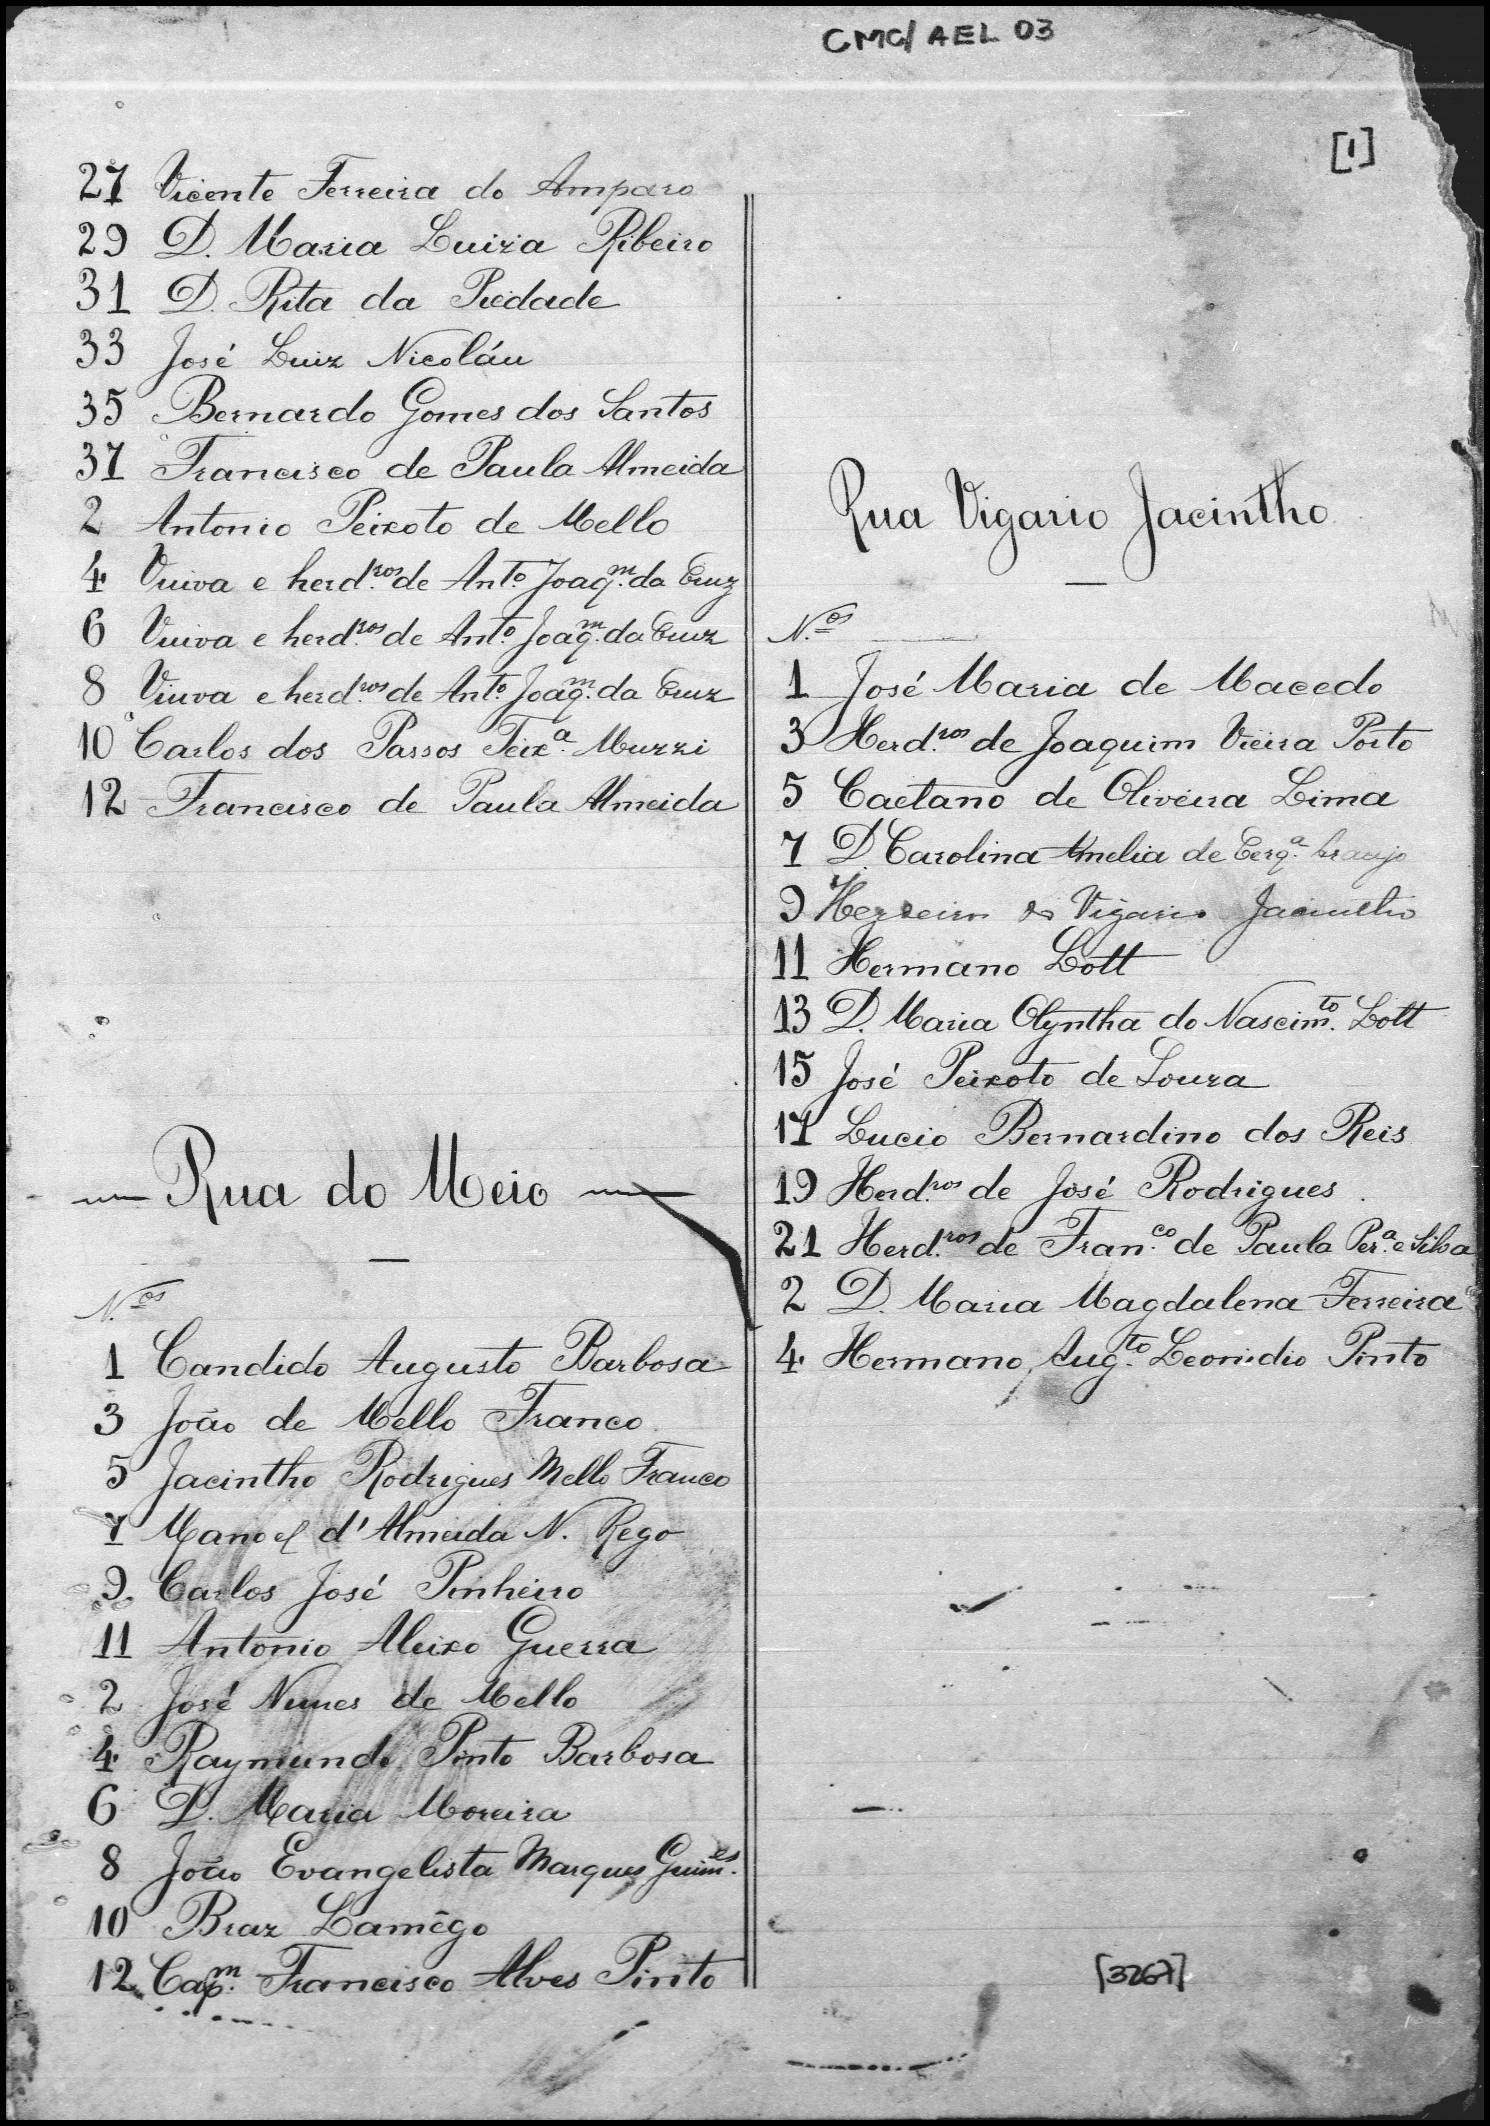 CMC/AEL 03
[1]
27 Vicente Ferreira do Amparo
29 D. Maria Luiza Ribeiro
31 D. Rita da Piedade
33 José Luiz Nicoláu
35 Bernardo Gomes dos Santos
37 Francisco de Paula Almeida
2 Antonio Peixoto de Mello
4 Viuva e herd.ros de Ant.o Joaq.m da Cruz
6 Viuva e herd.ros de Ant.o Joaq.m da Cruz
8 Viuva e herd.ros de Ant.o Joaq.m da Cruz
10 Carlos dos Passos Teix.a Muzzi
12 Francisco de Paula Almeida
Rua do Meio
N.os
1 Candido Augusto Barbosa
3 João de Mello Franco
5 Jacintho Rodrigues Mello Franco
7 Manoel d'Almeida N. Rego
9 Carlos José Pinheiro
11 Antonio Aleixo Guerra
2 José Nunes de Mello
4 Raymundo Pinto Barbosa
6 D. Maria Moreira
8 João Evangelista Marques Guim.es
10 Braz Lamêgo
12 Cap.m Francisco Alves Pinto
Rua Vigario Jacintho
N.os
1 José Maria de Macedo
3 Herd.ros de Joaquim Vieira Porto
5 Caetano de Oliveira Lima
7 D. Carolina Amelia de Cerq.a Araujo
9 Herdeiros do Vigario Jacintho
11 Hermano Lott
13 D. Maria Olyntha do Nascim.to Lott
15 José Peixoto de Souza
17 Lucio Bernardino dos Reis
19 Herd.ros de José Rodrigues
21 Herd.ros de Fran.co de Paula Per.a e Silva
2 D. Maria Magdalena Ferreira
4 Hermano Aug.to Leonidio Pinto
[3267]